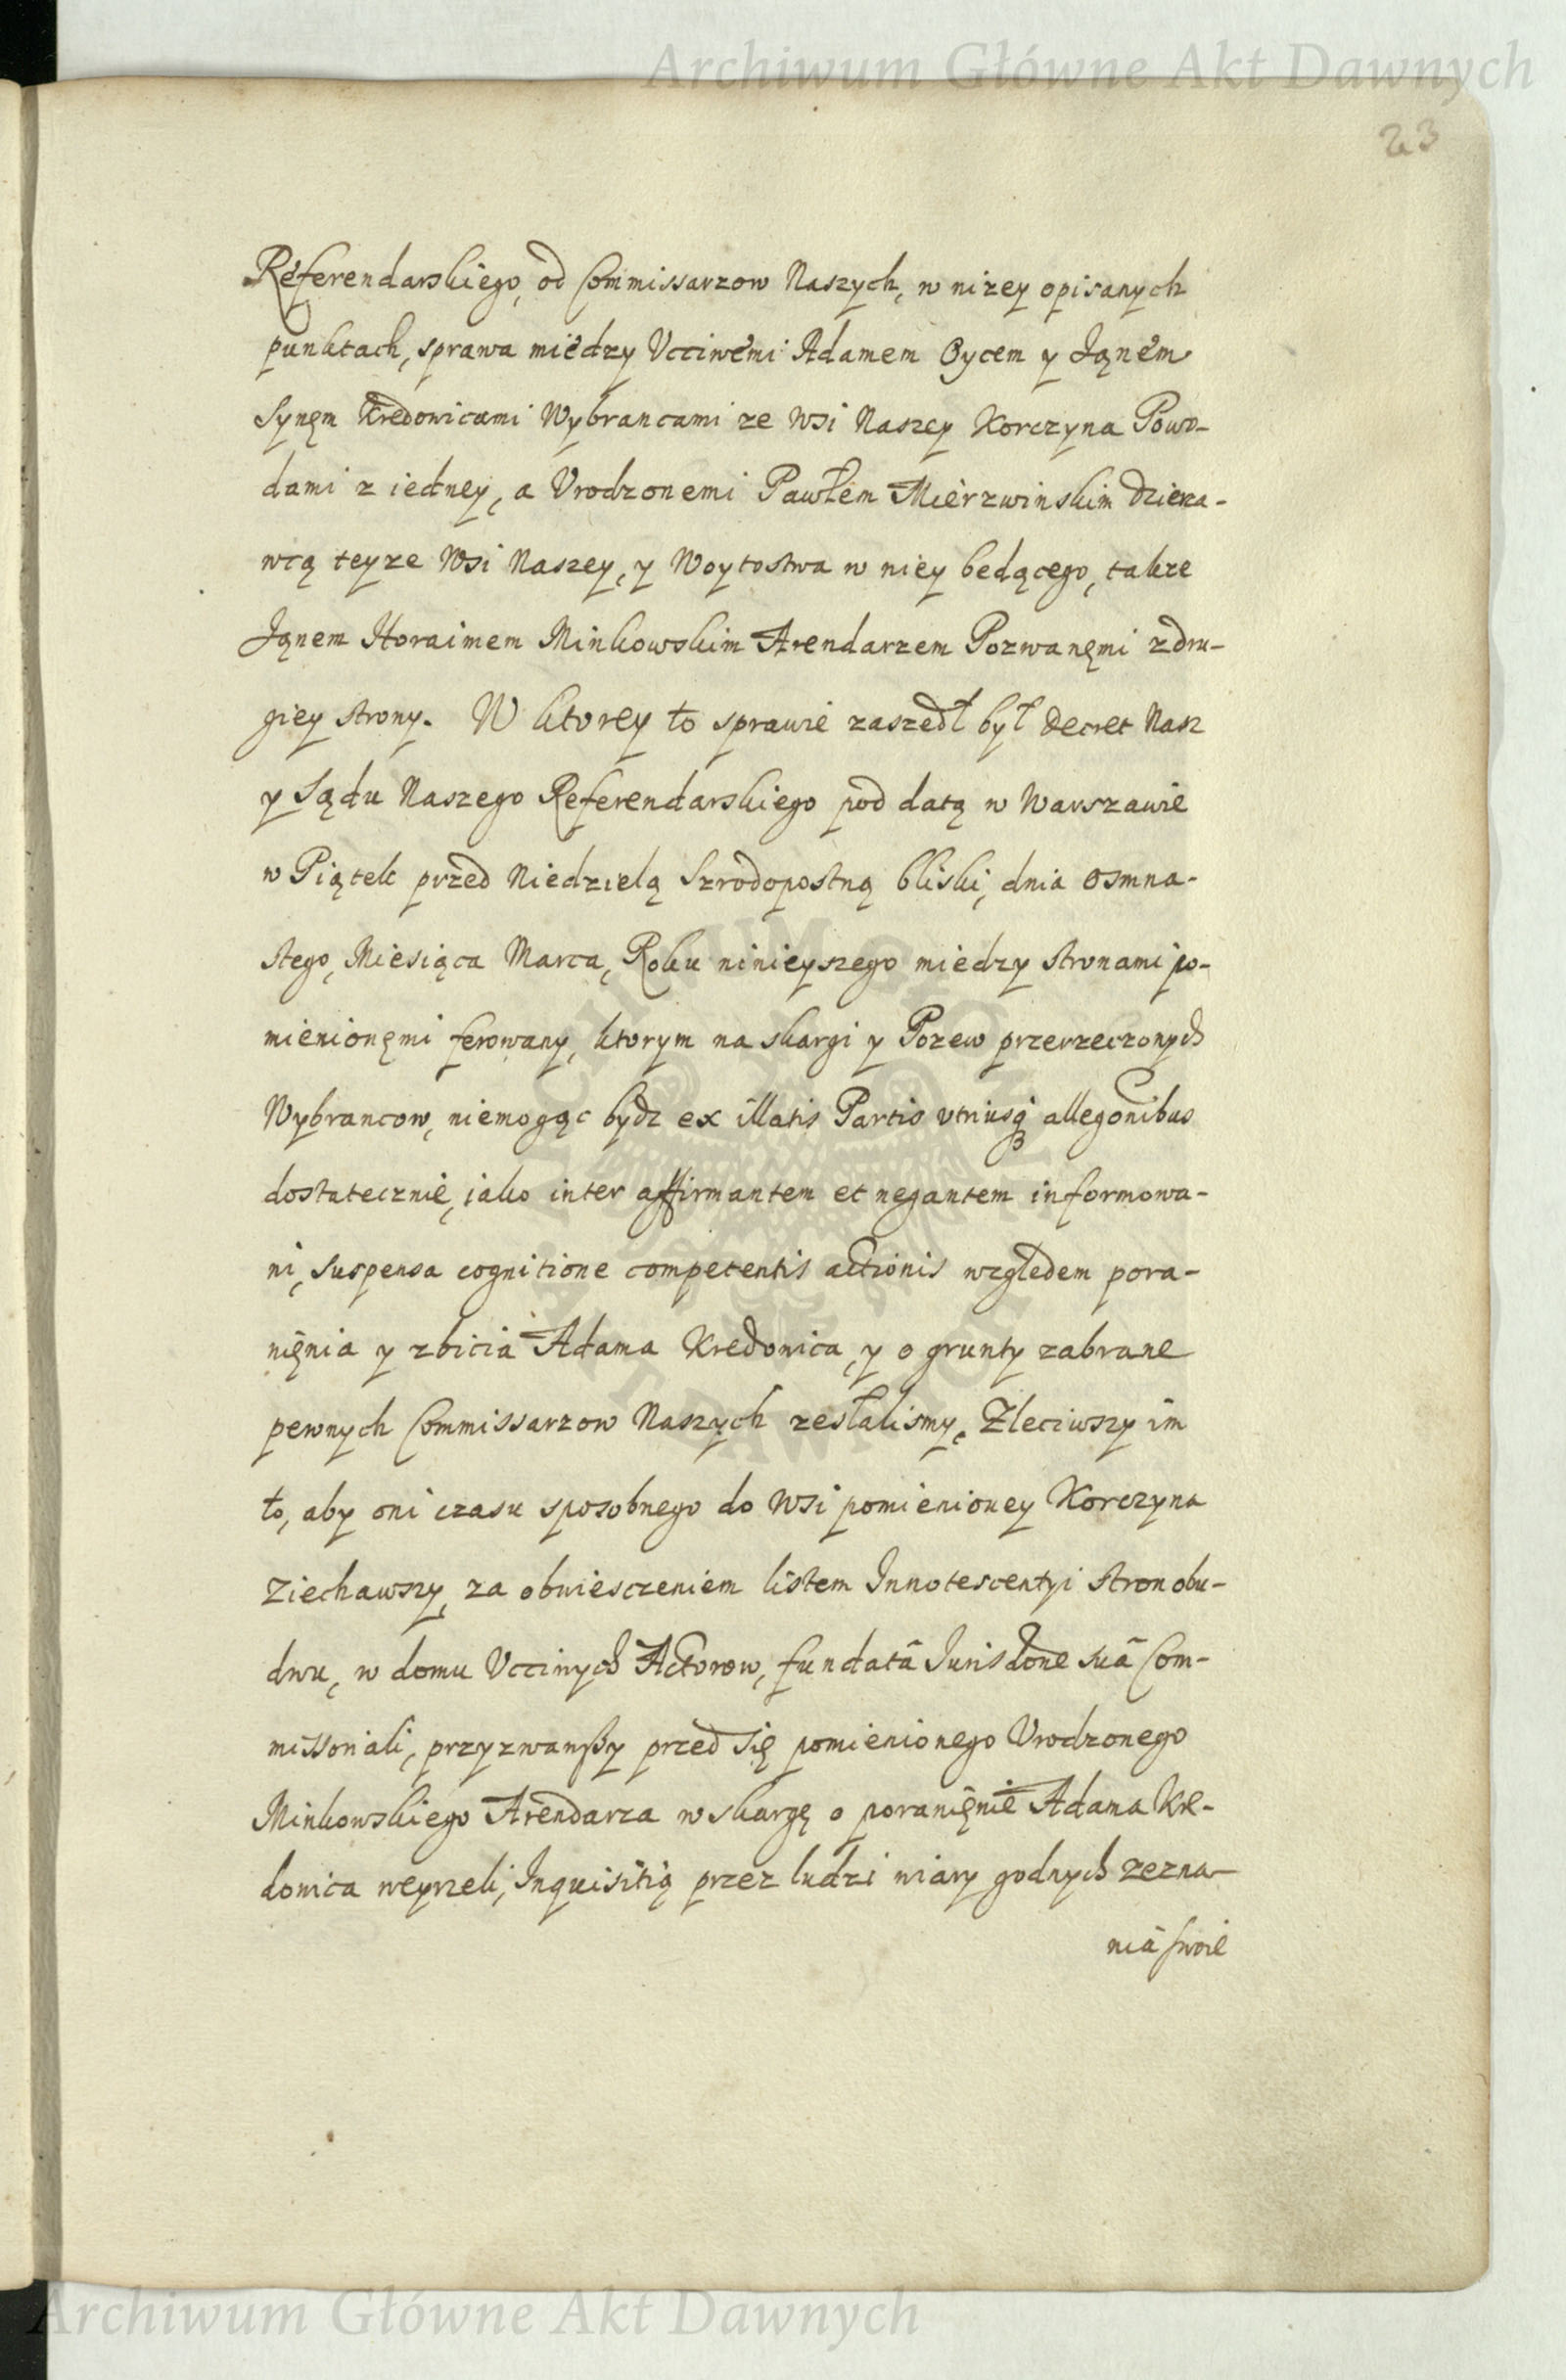 Archiwum Główne Akt Dawnych
23
Referendarskiego, od Commissarzow Naszych, w nizey opisanych
punktach, sprawa między Vcciwemi Adamem Oycem y Jąnem
Synęm Kredowicami Wybrancami ze Wsi Naszey Korczyna Powo-
dami z iedney, a Vrodzonemi Pawłem Mierzwinskim Dzierza-
wcą teyze Wsi Naszey, y Woytostwa w niey będącego, takze
Jąnem Horaimem Minkowskim Arendarzem Pozwanęmi z dru-
giey strony. W ktorey to sprawie zaszedł był Decret Nasz
y Sądu Naszego Referendarskiego pod datą w Warszawie
w Piątek przed Niedzielą Szrodopostną bliski, dnia osmna-
stego, Miesiąca Marca, Roku ninieyszego miedzy stronami po-
mienionęmi ferowany, ktorym na skargi y Pozew przerzeczonych
Wybrancow, niemogąc bydz ex illatis Partis vtriusq allegonibus
dostatecznie, iako inter affirmantem et negantem informowa-
ni, suspensa cognitione competentis actionis względem pora-
nięnia y zbicia Adama Kredowica, y o grunty zabrane
pewnych Commissarzow Naszych zesłalismy. Zleciwszy im
to, aby oni czasu sposobnego do Wsi pomienioney Korczyna
Ziechawszy, za obwiesczeniem listem Innotescentyi stron obu-
dwu, w domu Vcciwych Actorow, fundatâ Jurisdone suâ Com-
missoriali, przyzwawszy przed się pomienionego Vrodzonego
Minkowskiego Arendarza w skargę o poranięnie Adama Kre-
dowica weyrzeli, Inquisitią przez ludzi wiary godnych zezna-
nia swoie
Archiwum Główne Akt Dawnych